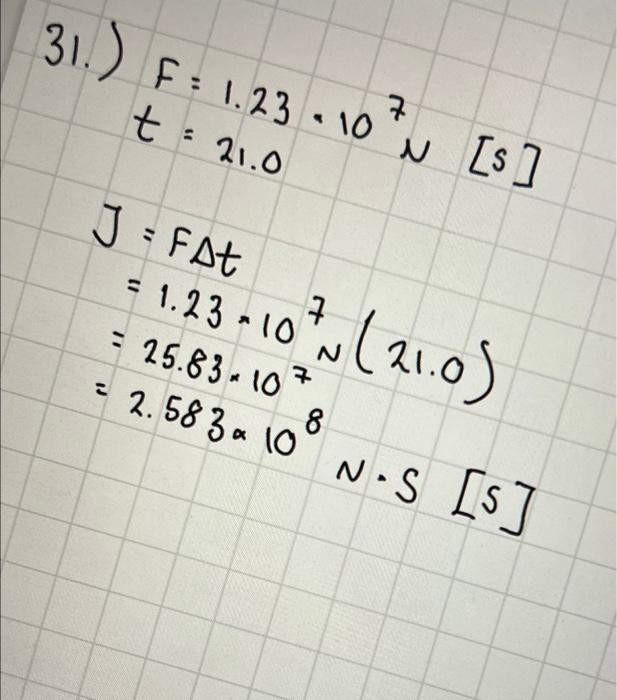 31.) F = 1.23 · 10⁷ N [S]
t = 21.0
J = FΔt
= 1.23 · 10⁷ N (21.0)
= 25.83 · 10⁷
= 2.583 · 10⁸ N · S [S]